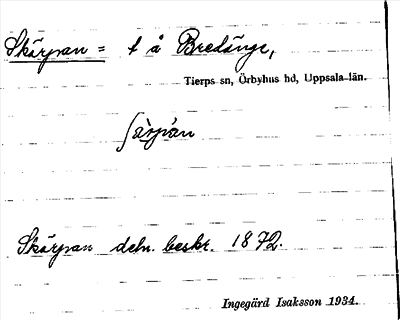 Skärpan = t å Bredänge,
Tierps sn, Örbyhus hd, Uppsala län.
ʃärpan
Skärpan deln. beskr. 1872.
Ingegärd Isaksson 1934.